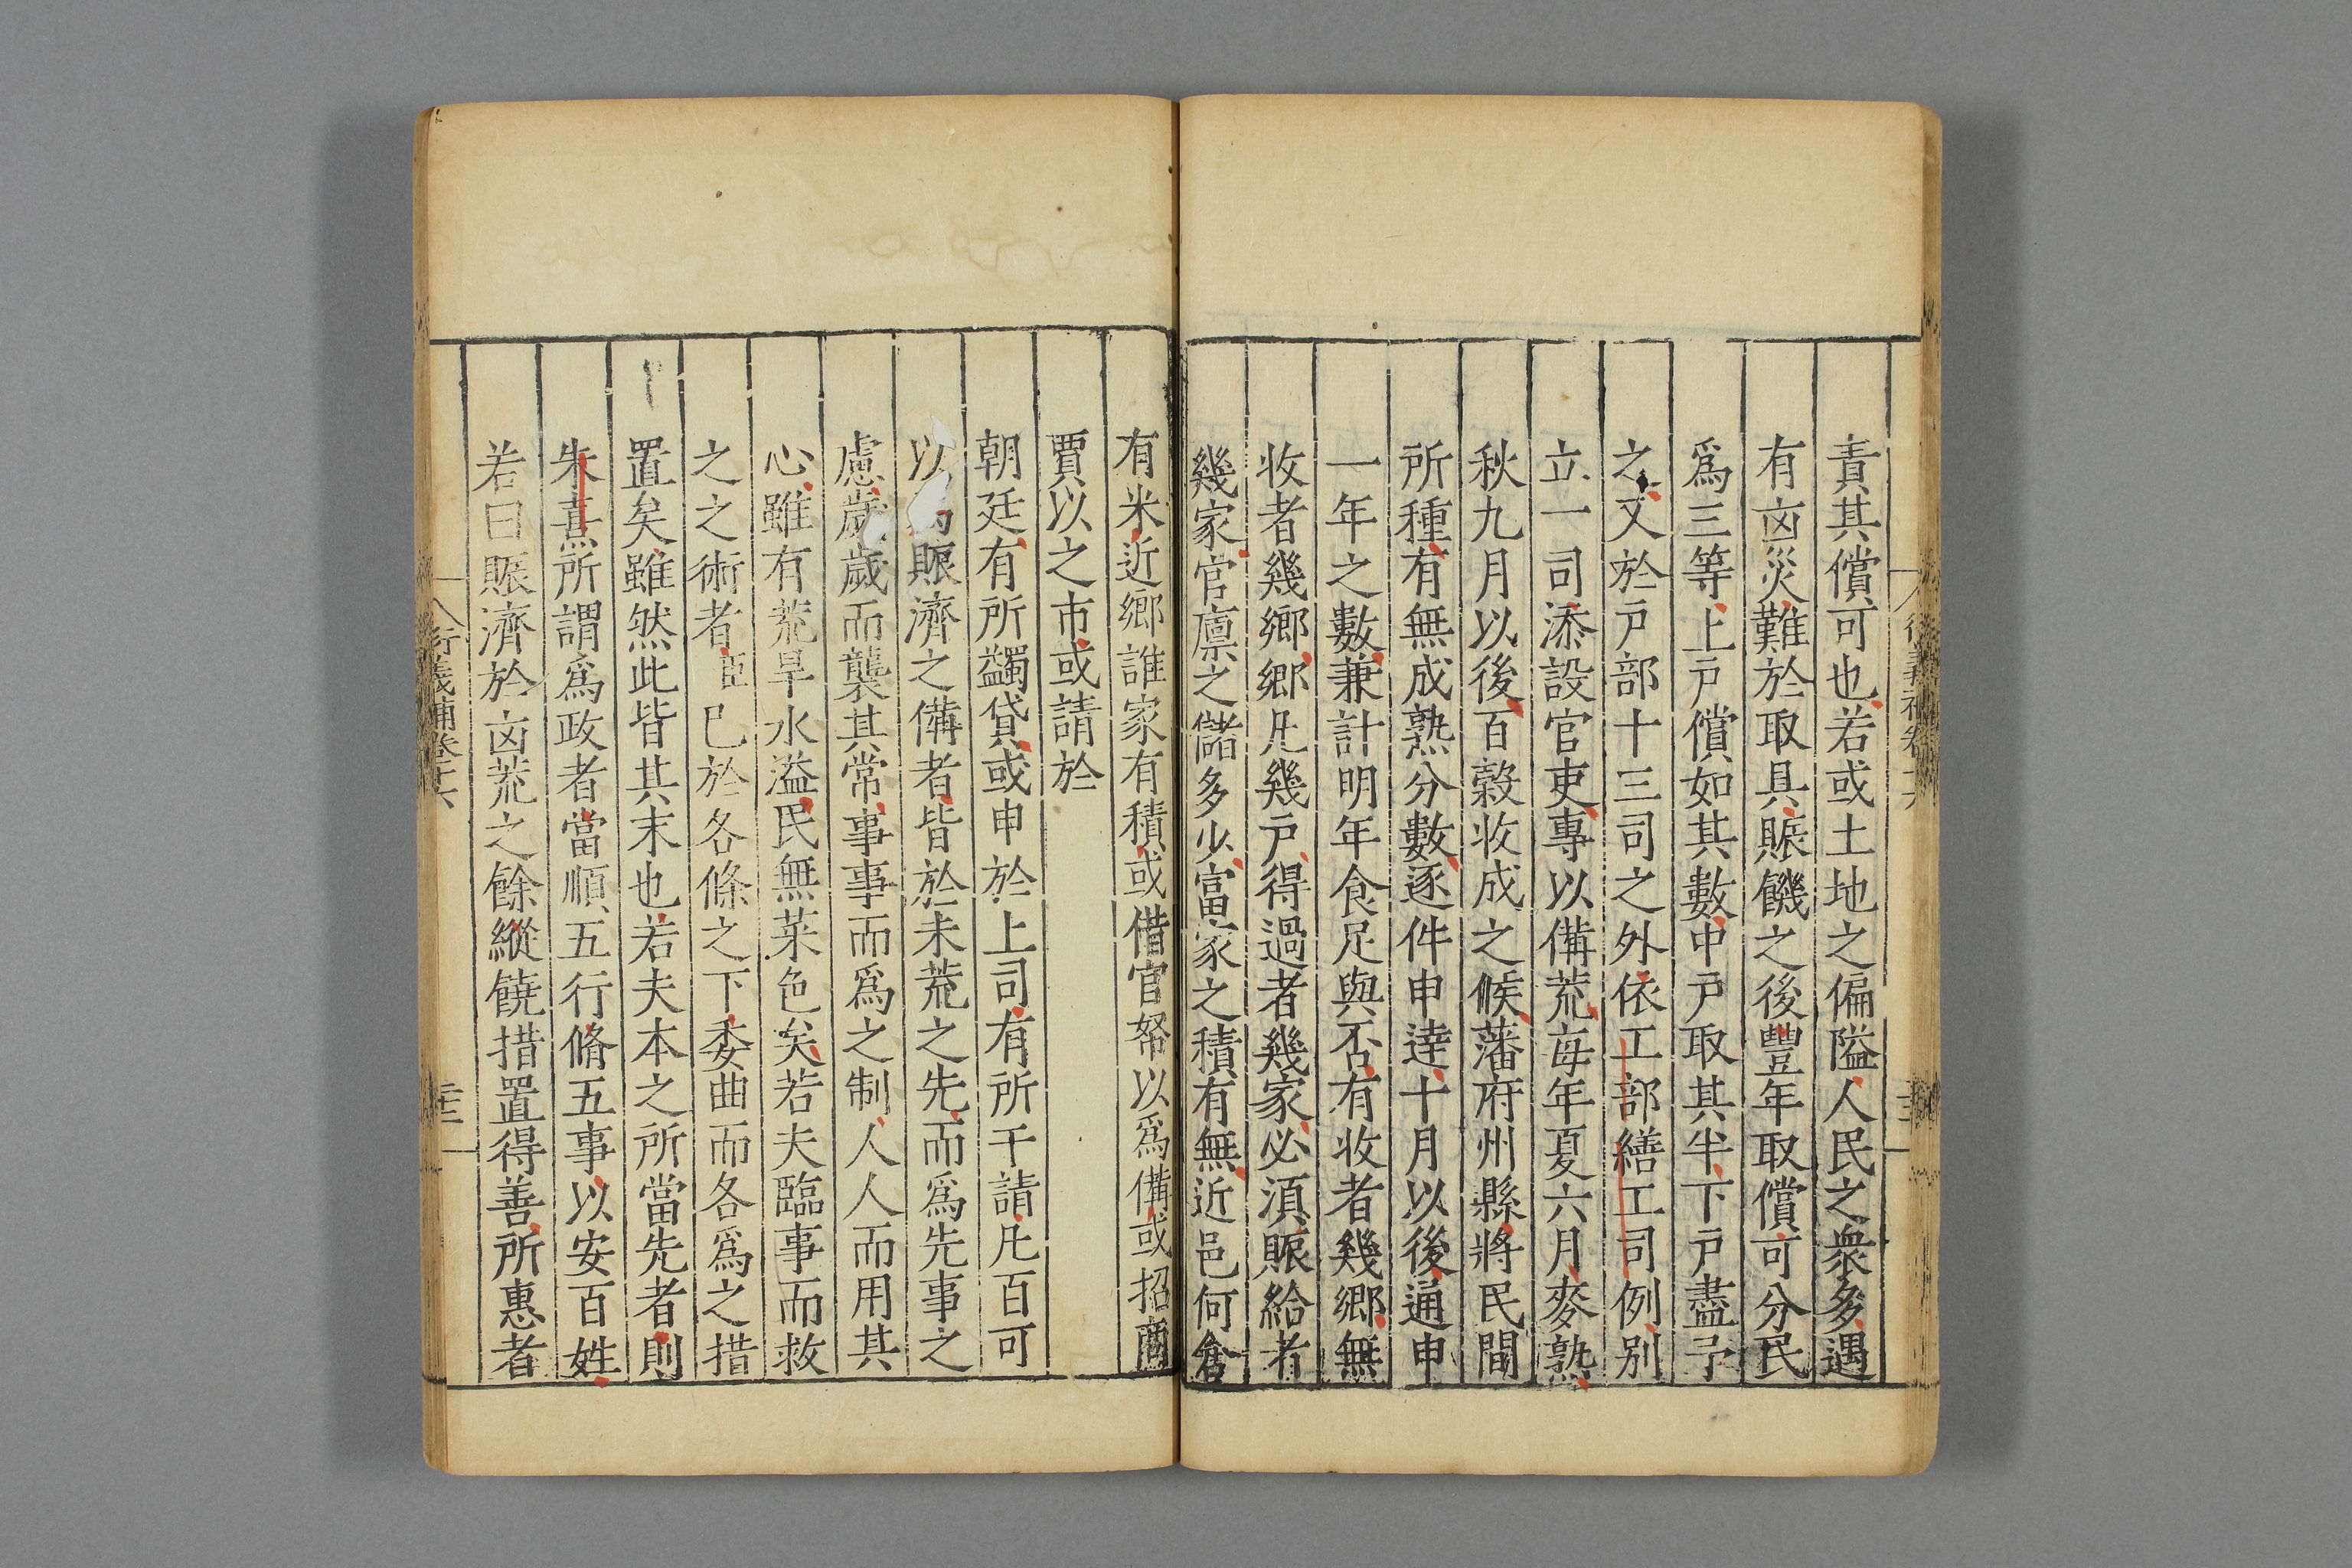 責其償可也若或土地之偏隘人民之衆多遇
有凶災難於取具賑饑之後豐年取償可分民
爲三等上戸償如其數中戸取其半下戸盡予
之又於戸部十三司之外依工部繕工司例別
立一司添設官吏專以備荒每年夏六月麥熟
秋九月以後百穀收成之候藩府州縣將民間
所種有無成熟分數逐件申達十月以後通申
一年之數兼計明年食足與不有收者幾鄉無
收者幾鄉鄉凡幾戸得過者幾家必湏賑給者
幾家官廪之儲多少富家之積有無近邑何倉
有米近鄉誰家有積或借官帑以爲備或招商
賈以之市或請於
朝廷有所蠲貸或申於上司有所干請凡百可
以賑濟之備者皆於未荒之先而爲先事之
慮歲歲而襲其常事事而爲之制人人而用其
心雖有荒旱水溢民無菜色矣若夫臨事而救
之之術者臣已於各條之下委曲而各爲之措
置矣雖然此皆其末也若夫本之所當先者則
朱熹所謂爲政者當順五行脩五事以安百姓
若曰賑濟於凶荒之餘縱饒措置得善所惠者